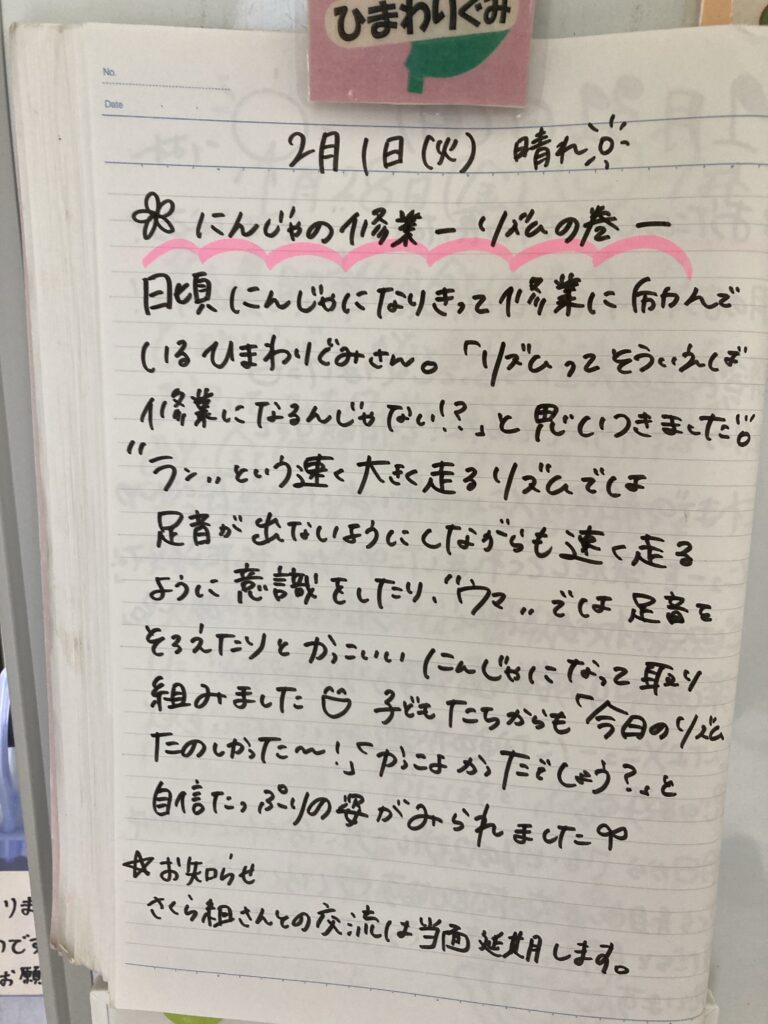 ひまわりぐみ
No.
Date
2月1日(火) 晴れ
にんじゃの修業ーリズムの巻ー
日頃にんじゃになりきって修業に励んで
いるひまわりぐみさん。「リズムってそういえば
修業になるんじゃない!?」と思いつきました
"ラン〟という速く大きく走るリズムでは
足音が出ないようにしながらも速く走る
ように意識をしたり、"ウマ〟では足音を
そろえたりとかっこいいにんじゃになって取り
組みました 子どもたちからも「今日のリズム
たのしかった〜!」「かっこよかったでしょう?」と
自信たっぷりの姿がみられました
☆お知らせ
さくら組さんとの交流は当面延期します。
りま
のです
お願